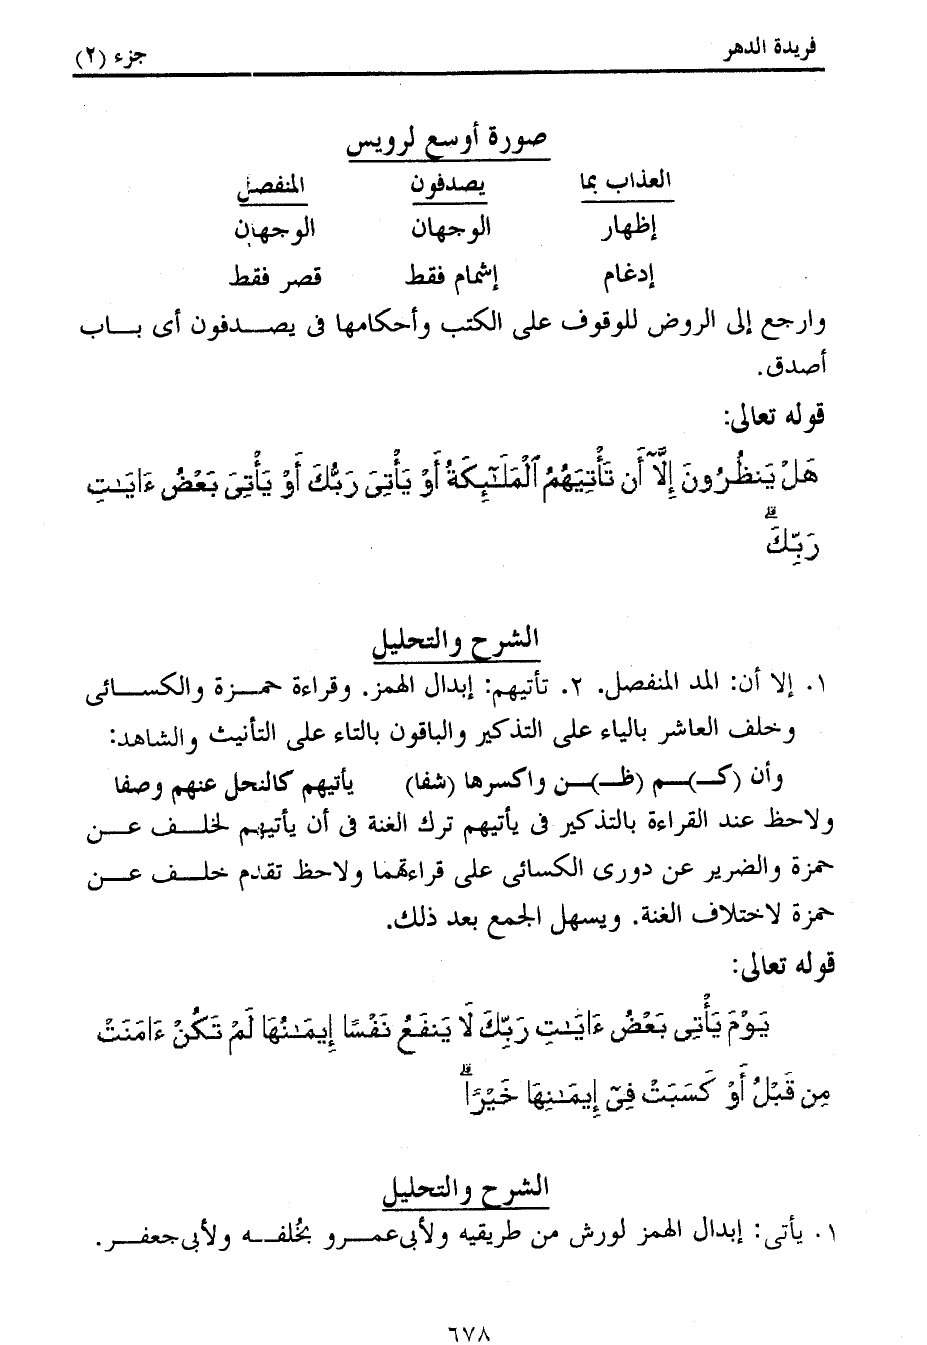 فريدة الدهر جزء (٢)
صورة أوسع لرويس
العذاب بما يصدفون المنفصل
إظهار الوجهان الوجهان
إدغام إشمام فقط قصر فقط
وارجع إلى الروض للوقوف على الكتب وأحكامها فى يصدفون أى باب
أصدق.
قوله تعالى:
هَلْ يَنظُرُونَ إِلَّآ أَن تَأْتِيَهُمُ ٱلْمَلَـٰٓئِكَةُ أَوْ يَأْتِىَ رَبُّكَ أَوْ يَأْتِىَ بَعْضُ ءَايَـٰتِ
رَبِّكَ ۗ
الشرح والتحليل
١. إلا أن: المد المنفصل. ٢. تأتيهم: إبدال الهمز. وقراءة حمزة والكسائى
وخلف العاشر بالياء على التذكير والباقون بالتاء على التأنيث والشاهد:
وأن (كـ)ـم (ظـ)ـن واكسرها (شفا) يأتيهم كالنحل عنهم وصفا
ولاحظ عند القراءة بالتذكير فى يأتيهم ترك الغنة فى أن يأتيهم لخلف عن
حمزة والضرير عن دورى الكسائى على قراءتهما ولاحظ تقدم خلف عن
حمزة لاختلاف الغنة. ويسهل الجمع بعد ذلك.
قوله تعالى:
يَوْمَ يَأْتِى بَعْضُ ءَايَـٰتِ رَبِّكَ لَا يَنفَعُ نَفْسًا إِيمَـٰنُهَا لَمْ تَكُنْ ءَامَنَتْ
مِن قَبْلُ أَوْ كَسَبَتْ فِىٓ إِيمَـٰنِهَا خَيْرًا ۗ
الشرح والتحليل
١. يأتى: إبدال الهمز لورش من طريقيه ولأبى عمرو بخُلفه ولأبى جعفر.
٦٧٨